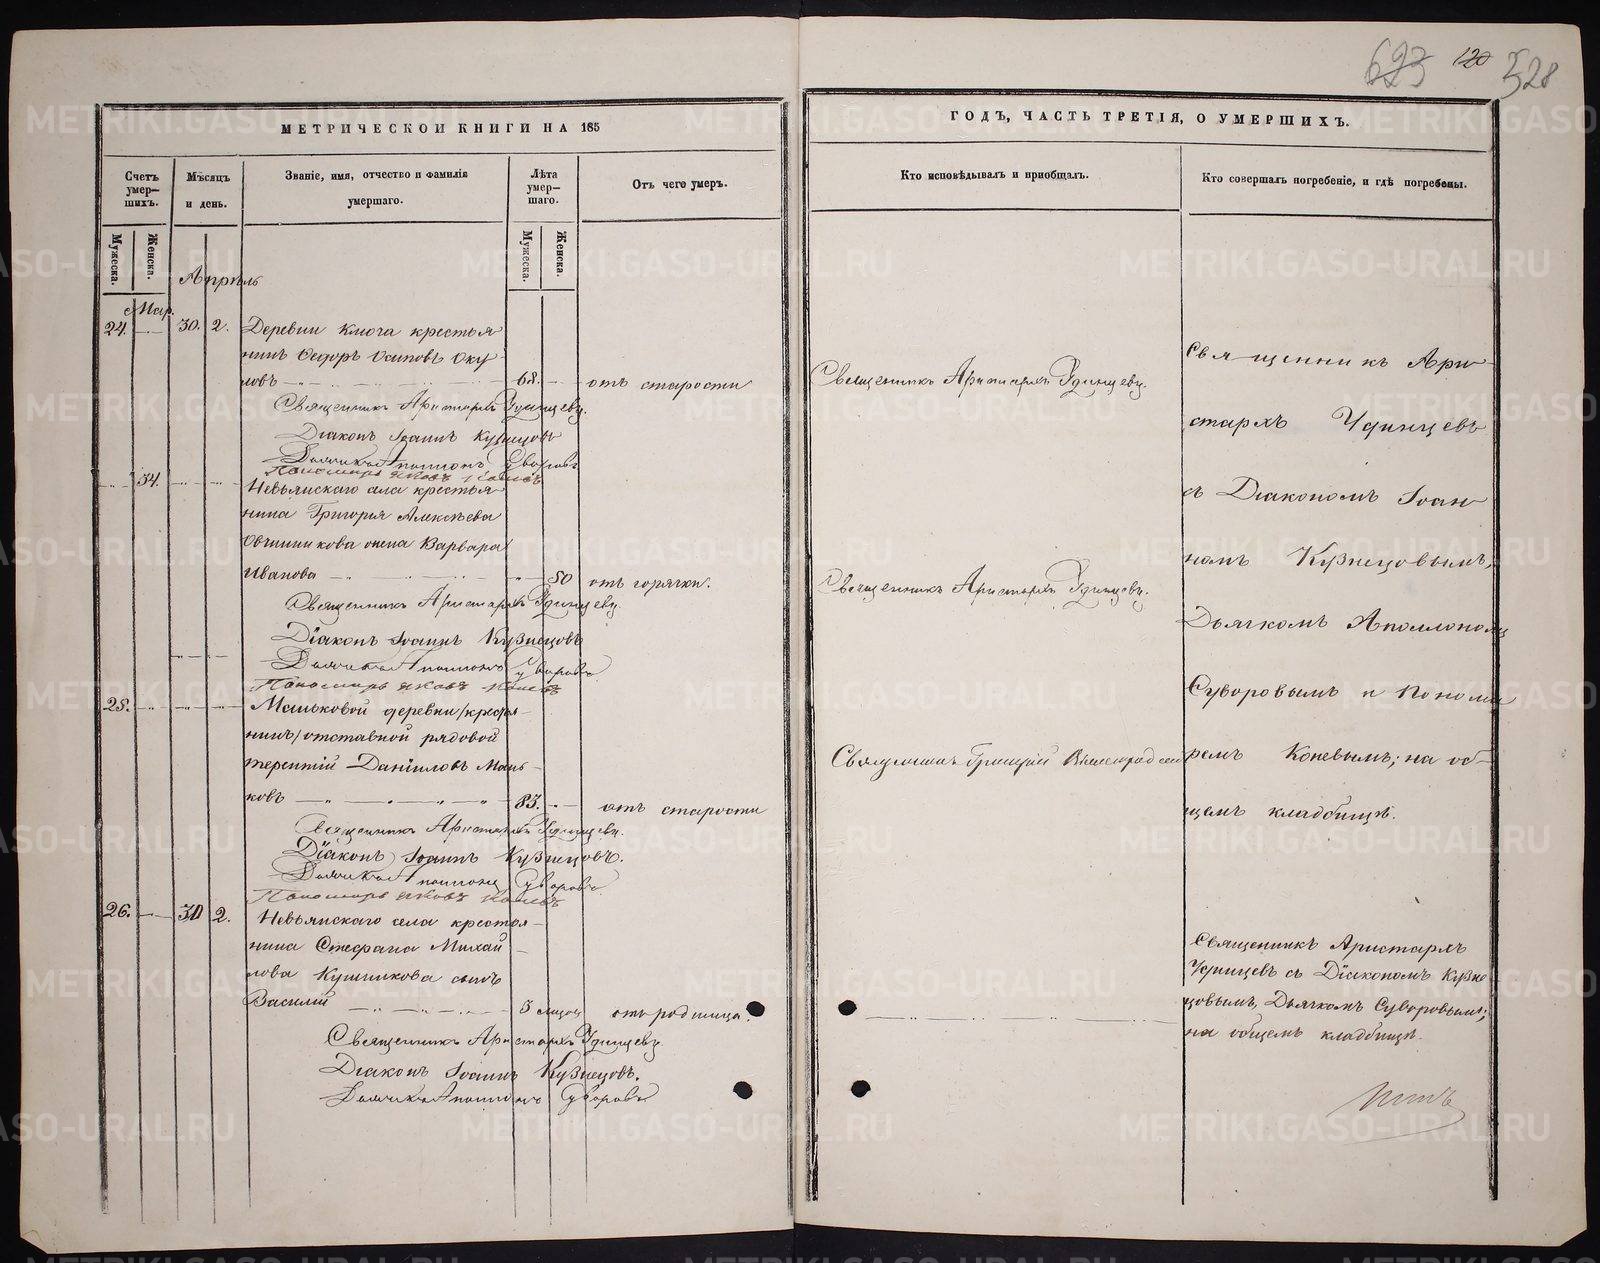 623 120 528
МЕТРИЧЕСКОЙ КНИГИ НА 185
ГОДЪ, ЧАСТЬ ТРЕТІЯ, О УМЕРШИХЪ.
Счетъ умер-шихъ.
Мѣсяцъ и день.
Званіе, имя, отчество и фамилія умершаго.
Лѣта умер-шаго.
Отъ чего умеръ.
Кто исповѣдывалъ и пріобщалъ.
Кто совершалъ погребеніе, и гдѣ погребены.
Мужеска.
Женска.
Мужеска.
Женска.
Апрѣль
Мар.
24. 30. 2. Деревни Ключа крестья
нинъ Ѳедоръ Осиповъ Оку
ловъ 68. отъ старости
Священникъ Аристархъ Удинцевъ.
Діаконъ Іоаннъ Кузнецовъ
Дьячекъ Аполлонъ Суворовъ
Пономарь Яковъ Коневъ
34.
Невьянскаго села крестья
нина Григорья Алексѣева
Овчинникова жена Варвара
Иванова 50 отъ горячки.
Священникъ Аристархъ Удинцевъ.
Діаконъ Іоаннъ Кузнецовъ
Дьячекъ Аполлонъ Суворовъ
Пономарь Яковъ Коневъ
25. Маньковой деревни /кресья
нинъ/ отставной рядовой
Терентій Даніиловъ Мань-
ковъ 83. отъ старости
Священникъ Аристархъ Удинцевъ.
Діаконъ Іоаннъ Кузнецовъ.
Дьячекъ Аполлонъ Суворовъ
Пономарь Яковъ Коневъ
26. 30 2. Невьянскаго села крестья-
нина Стефана Михай-
лова Кушникова сынъ
Василій 5 мѣсяц отъ родимца.
Священникъ Аристархъ Удинцевъ
Діаконъ Іоаннъ Кузнецовъ.
Дьячекъ Аполлонъ Суворовъ
Священникъ Аристархъ Удинцевъ.
Священникъ Аристархъ Удинцевъ.
Священникъ Григорій
Священникъ Ари-
стархъ Удинцевъ
съ Діакономъ Іоан
номъ Кузнецовымъ,
Дьячкомъ Аполлономъ
Суворовымъ и Понома
ремъ Коневымъ; на об-
щемъ кладбищѣ.
Священникъ Аристархъ
Удинцевъ съ Діакономъ Кузне
цовымъ, Дьячкомъ Суворовымъ;
на общемъ кладбищѣ.
METRIKI.GASO-URAL.RU